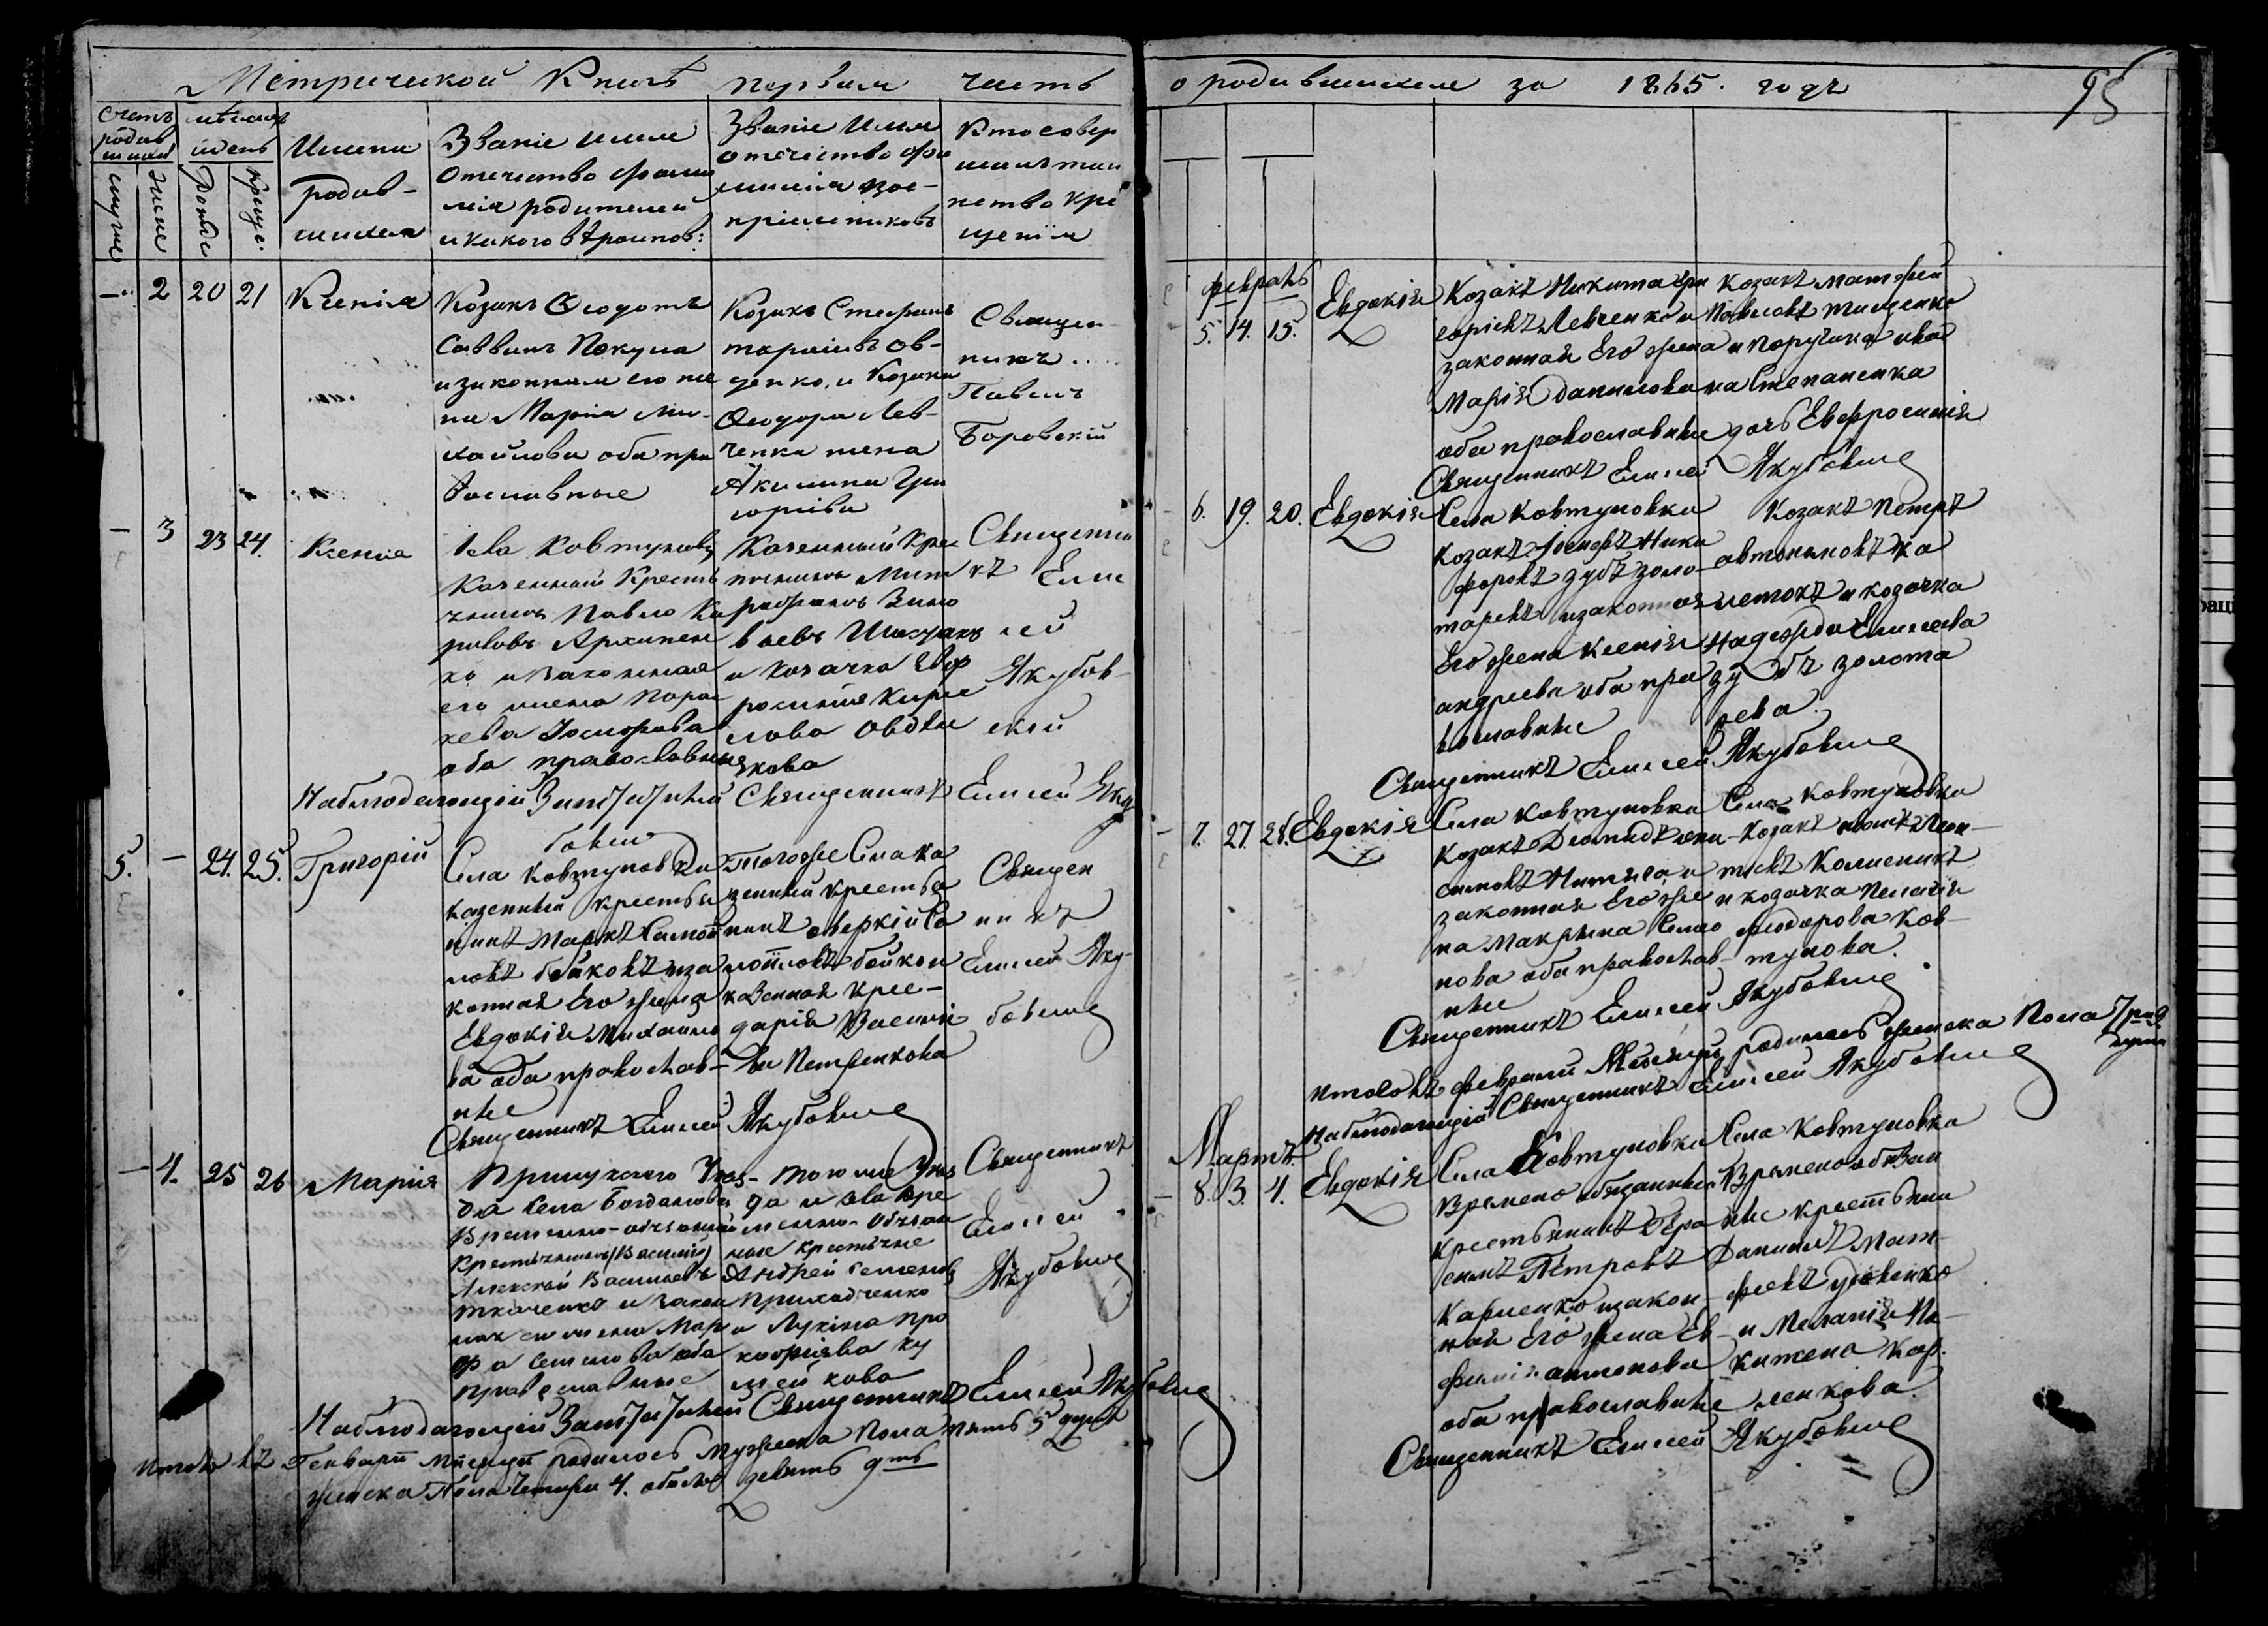 Метрической Книги первая часть
счетъ родившихся
мѣсяцъ и день
Имена родив-
шихся
Званіе имя
отечество фами
лія родителей
и какого вѣроиспов:
Званіе имя
отечество фа
милія вос-
пріемниковъ
Кто совер
шилъ таи
нство кре
щенія
женс
Рожде
крещ.
2 20 21 Ксенія
Козакъ Ѳеодотъ
Саввинъ Покуша
и законная его же
на Марія Ми-
хайлова оба пра
вославные
Козакъ Стефанъ
ов-
ченко, и Козака
Ѳеодора Лев-
ченка жена
Акилина Гри
горіева
Священ
никъ
Павелъ
Боровскій
3 23 24 Ксенія
Ковтуновки
Казенный Крест
янинъ Павло Ка
рповъ Архипен
ко и законная
его жена Парас
кева
оба православные
Казенный Кре
стянинъ Мит
рофанъ Зино
вьевъ
и козачка Евф
росинія Кири
лова
Священни
къ Ели
сей
Якубов-
ский
Наблюдающій Священникъ Елисей Яку
бович
5. — 24. 25. Григорій
Села Ковтуновки
казенный крестья
нинъ Маркъ Самой
ловъ бойковъ и за
конная его жена
Евдокія Михайло
ва оба православ-
ные
Того же Села ка
зенный крестья
нинъ Аверкій Са
мойловъ бойков
казенная крес-
Дарія Василі
ва Петренкова
Священ
никъ
Елисей Яку-
бовичъ
Священникъ Елисей Якубовичъ
— 4. 25 26 Марія
Прилукского Уез-
да Села Богдановки
Временно-обязаный
Крестьянинъ (Василій)
Алексѣй Васильевъ
Ткаченко и закон
ная его жена Мар
фа Семенова оба
православные
того же Уез
да и села вре
менно-обязан
ные крестьяне
Андрей Семенов
Приходченко
и Лукія Про
кофіева Ку
лей кова
Священникъ
Елисей
Якубовичъ
Наблюдающій Священникъ Елисей Якубовичъ
Итого въ Генварѣ мѣсяцѣ родилось мужеска Пола пять 5 душъ
женска Пола четыри 4. обоего девять 9ть
о родившихся за 1865. годъ
95
февраль
5. 14. 15. Евдокія
Козакъ Никита Гри
горіевъ Левченко и
законная Его жена
Марія Данилова
оба православные
Козакъ Матфей
Павловъ Тищенко
и поручика Ива
на Степаненка
дочь Евфросинія
Священникъ Елисей Якубовичъ
6. 19. 20. Евдокія
Села Ковтуновки
Козакъ Іосифъ Ники
форовъ Зубъ Золо-
таревъ и законная
Его жена Ксенія
Андреева оба пра
вославные
Козакъ Петръ
Автономовъ
и козачка
Надежда Елисеева
Зубъ Золота
рева.
Священникъ Елисей Якубовичъ
7. 27. 28. Евдокія
Села Ковтуновки
Козакъ Діомидъ
и
законная Его же
на Макрина Семо
нова оба православ-
ные
Села Ковтуновки
Козакъ
и козачка Пелагія
Федорова Ков-
тунова.
Священникъ Елисей Якубовичъ
Итого въ февралѣ Мѣсяцѣ родилось женска Пола три 3
душъ
Наблюдающій Священникъ Елисей Якубовичъ
Мартъ.
8. 3. 4. Евдокія
Села Ковтуновки
Временообязанный
Крестьянинъ Гера
симъ Петровъ
Карпенко и закон-
ная Его жена Ев-
фимія Антонова
оба православные
Села Ковтуновки
Временообязан
ные крестьяни
Даніилъ Мат-
феевъ Удовенко
и Меланія Ни-
китена Кар-
пенкова.
Священникъ Елисей Якубовичъ